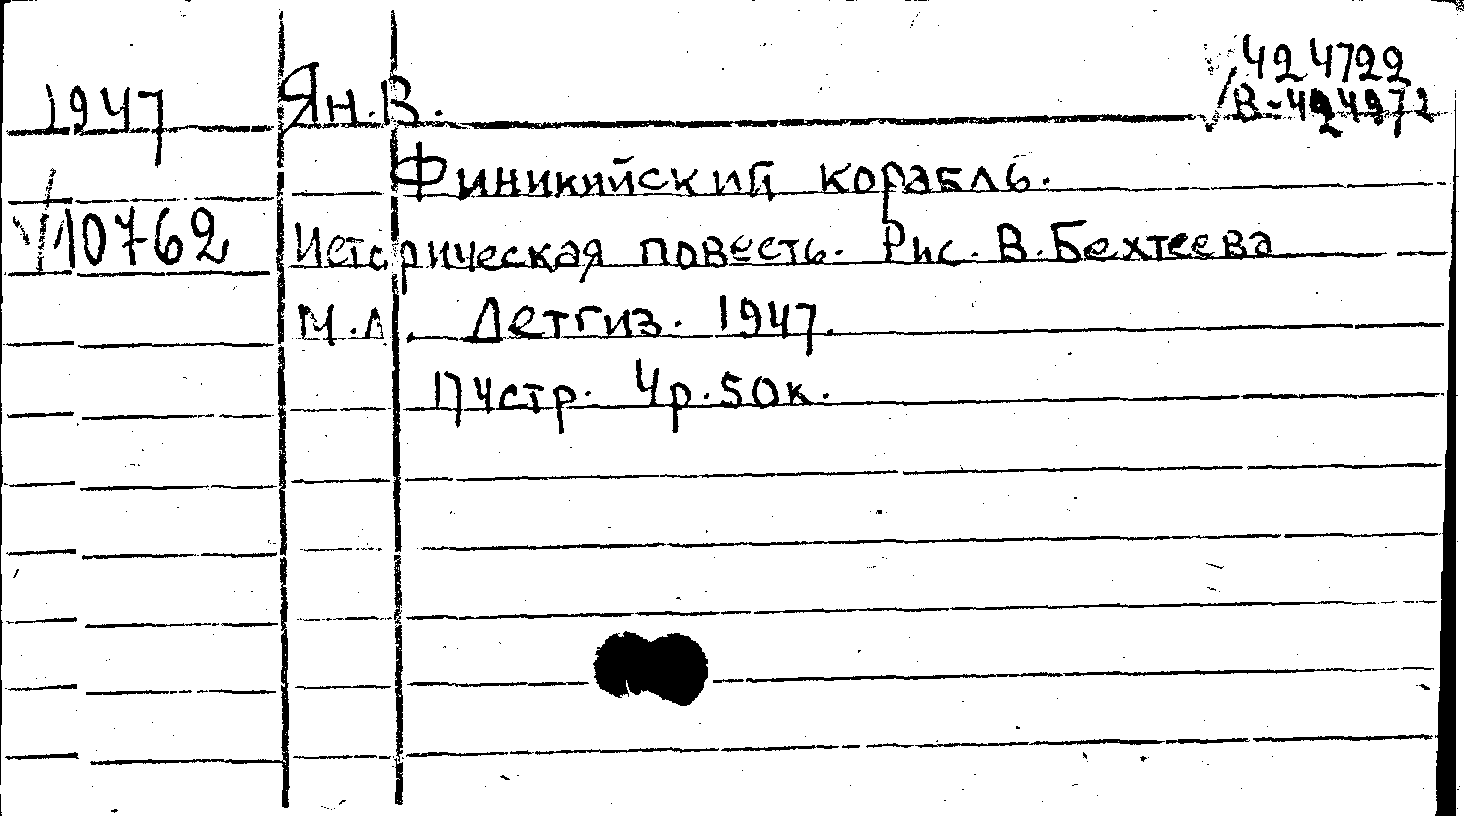 424722
1947 Ян. В.
Финикийский корабль.
10762 Историческая повесть. Рис. В. Бехтеева
М.Л. Детгиз. 1947.
174стр. 4р.50к.